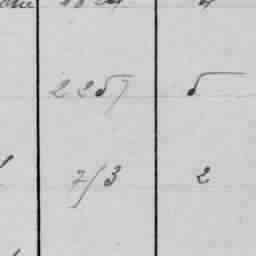 2257 5
7/3 2